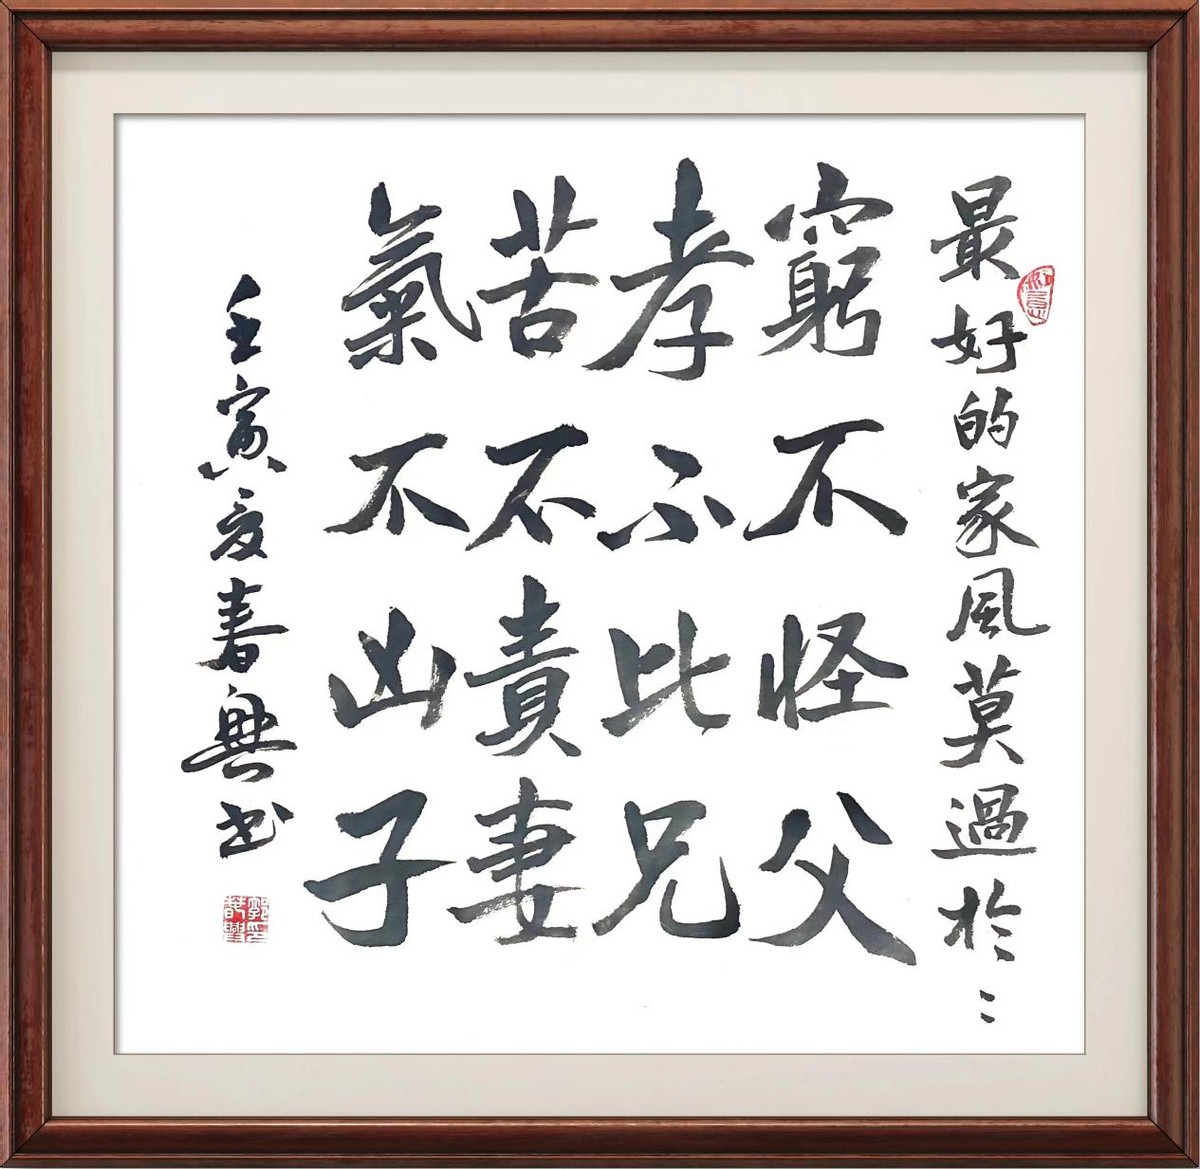 最好的家風莫過於：
窮不怪父
孝不比兄
苦不責妻
氣不凶子
壬寅夏春興书
郭印春興